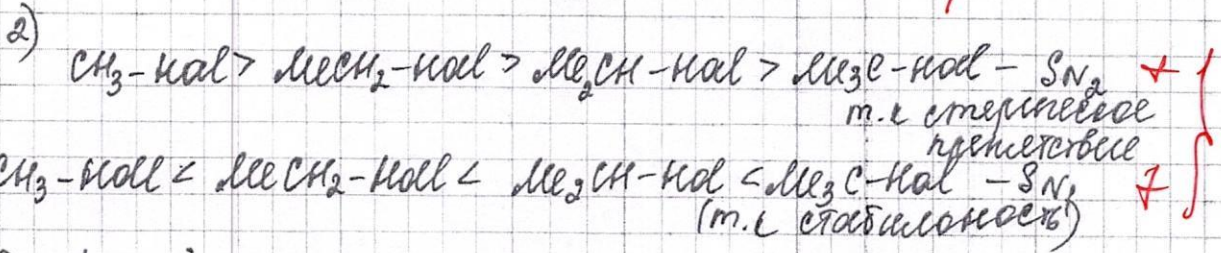 2)
CH₃-Hal > MeCH₂-Hal > Me₂CH-Hal > Me₃C-Hal - SN₂ +
т.к стерическое
препятствие
CH₃-Hal < MeCH₂-Hal < Me₂CH-Hal < Me₃C-Hal - SN₁ +
(т.к стабилоность)